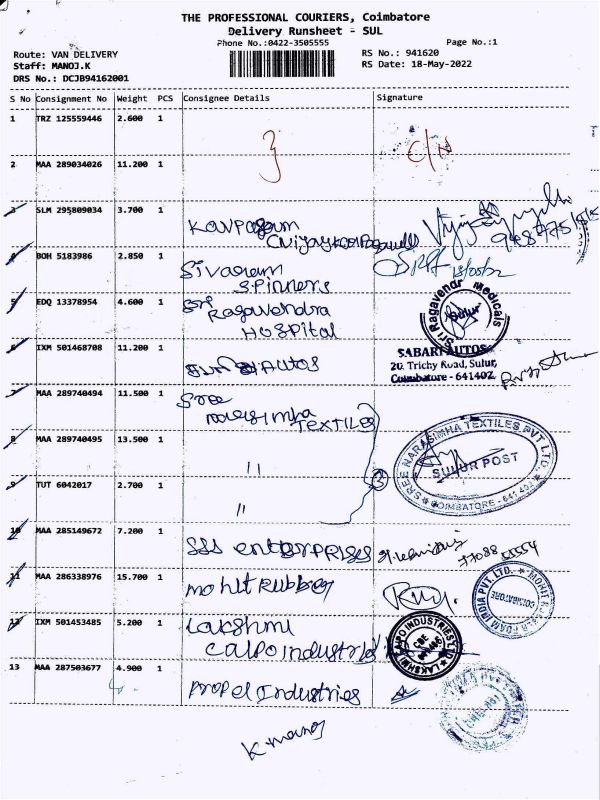 THE PROFESSIONAL COURIERS, Coimbatore
Delivery Runsheet - SUL
Phone No.:0422-3505555
Page No.:1
Route: VAN DELIVERY
RS No.: 941620
Staff: MANOJ.K
RS Date: 18-May-2022
DRS No.: DCJB94162001
S No Consignment No Weight PCS Consignee Details Signature
1 TRZ 125559446 2.600 1
C/N
2 MAA 289034026 11.200 1
3 SLM 295809034 3.700 1
4 BOH 5183986 2.850 1
Sivaram
Spinners
18/05/22
5 EDQ 13378954 4.600 1
Sri
Ragavendra
Hospital
Sri Ragavendr Medicals
6 IXM 501468708 11.200 1
Autos
SABARI AUTOS
20, Trichy Road, Sulur,
Coimbatore - 641402.
7 MAA 289740494 11.500 1
Sree
Narasimha
TEXTILES
8 MAA 289740495 13.500 1
"
SREE NARASIMHA TEXTILES PVT LTD.
SULUR POST
COIMBATORE - 641 402
9 TUT 6042017 2.700 1
"
3
10 MAA 285149672 7.200 1
SSS enterprises
11 MAA 286338976 15.700 1
Mohit Rubber
COIMBATORE
12 IXM 501453485 5.200 1
Lakshmi
Calpo industries
13 MAA 287503677 4.900 1
Propel Industries
K. Manoj